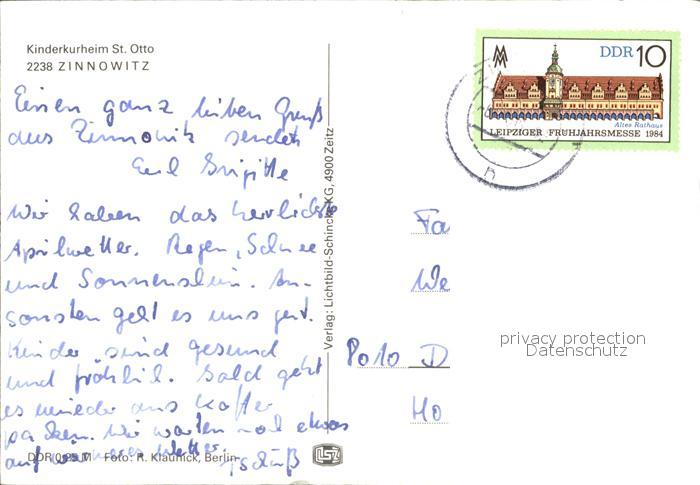 Kinderkurheim St. Otto
2238 ZINNOWITZ
Einen ganz lieben Gruß
aus Zinnowitz sendet
Brigitte
Wir haben das herrlichste
Aprilwetter. Regen, Schnee
und Sonnenschein. An-
sonsten geht es uns gut.
Kinder sind gesund
und fröhlich. Bald geht
es wieder ans Koffer
packen. Wir warten noch etwas
auf wärmeres Wetter
Tschüß
DDR 0,25 M Foto: R. Klaunick, Berlin
Verlag: Lichtbild-Schincke KG, 4900 Zeitz
LSZ
DDR 10
Altes Rathaus
LEIPZIGER FRÜHJAHRSMESSE 1984
Fa
We
8010 D
Ho
privacy protection
Datenschutz